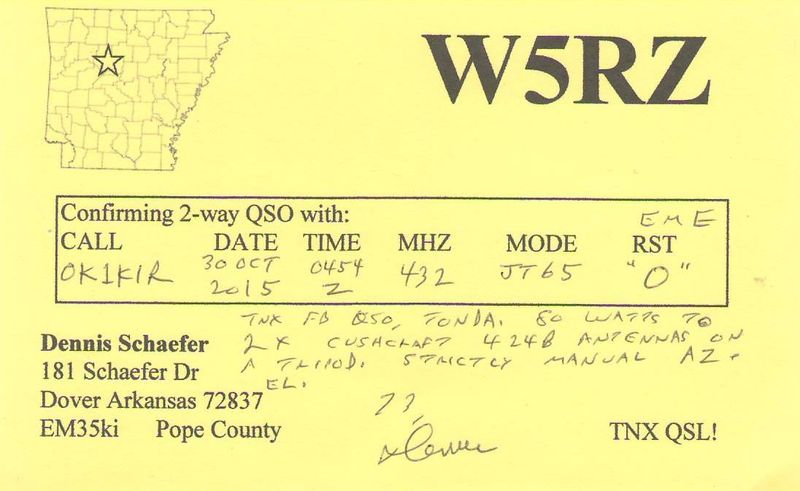 W5RZ
Confirming 2-way QSO with:
EME
CALL DATE TIME MHZ MODE RST
OK1KIR 30 OCT 2015 0454 Z 432 JT65 "O"
TNX FB QSO, TONDA. 80 WATTS TO
2X CUSHCRAFT 424B ANTENNAS ON
A TRIPOD. STRICTLY MANUAL AZ-
EL.
73,
Dennis
Dennis Schaefer
181 Schaefer Dr
Dover Arkansas 72837
EM35ki Pope County
TNX QSL!